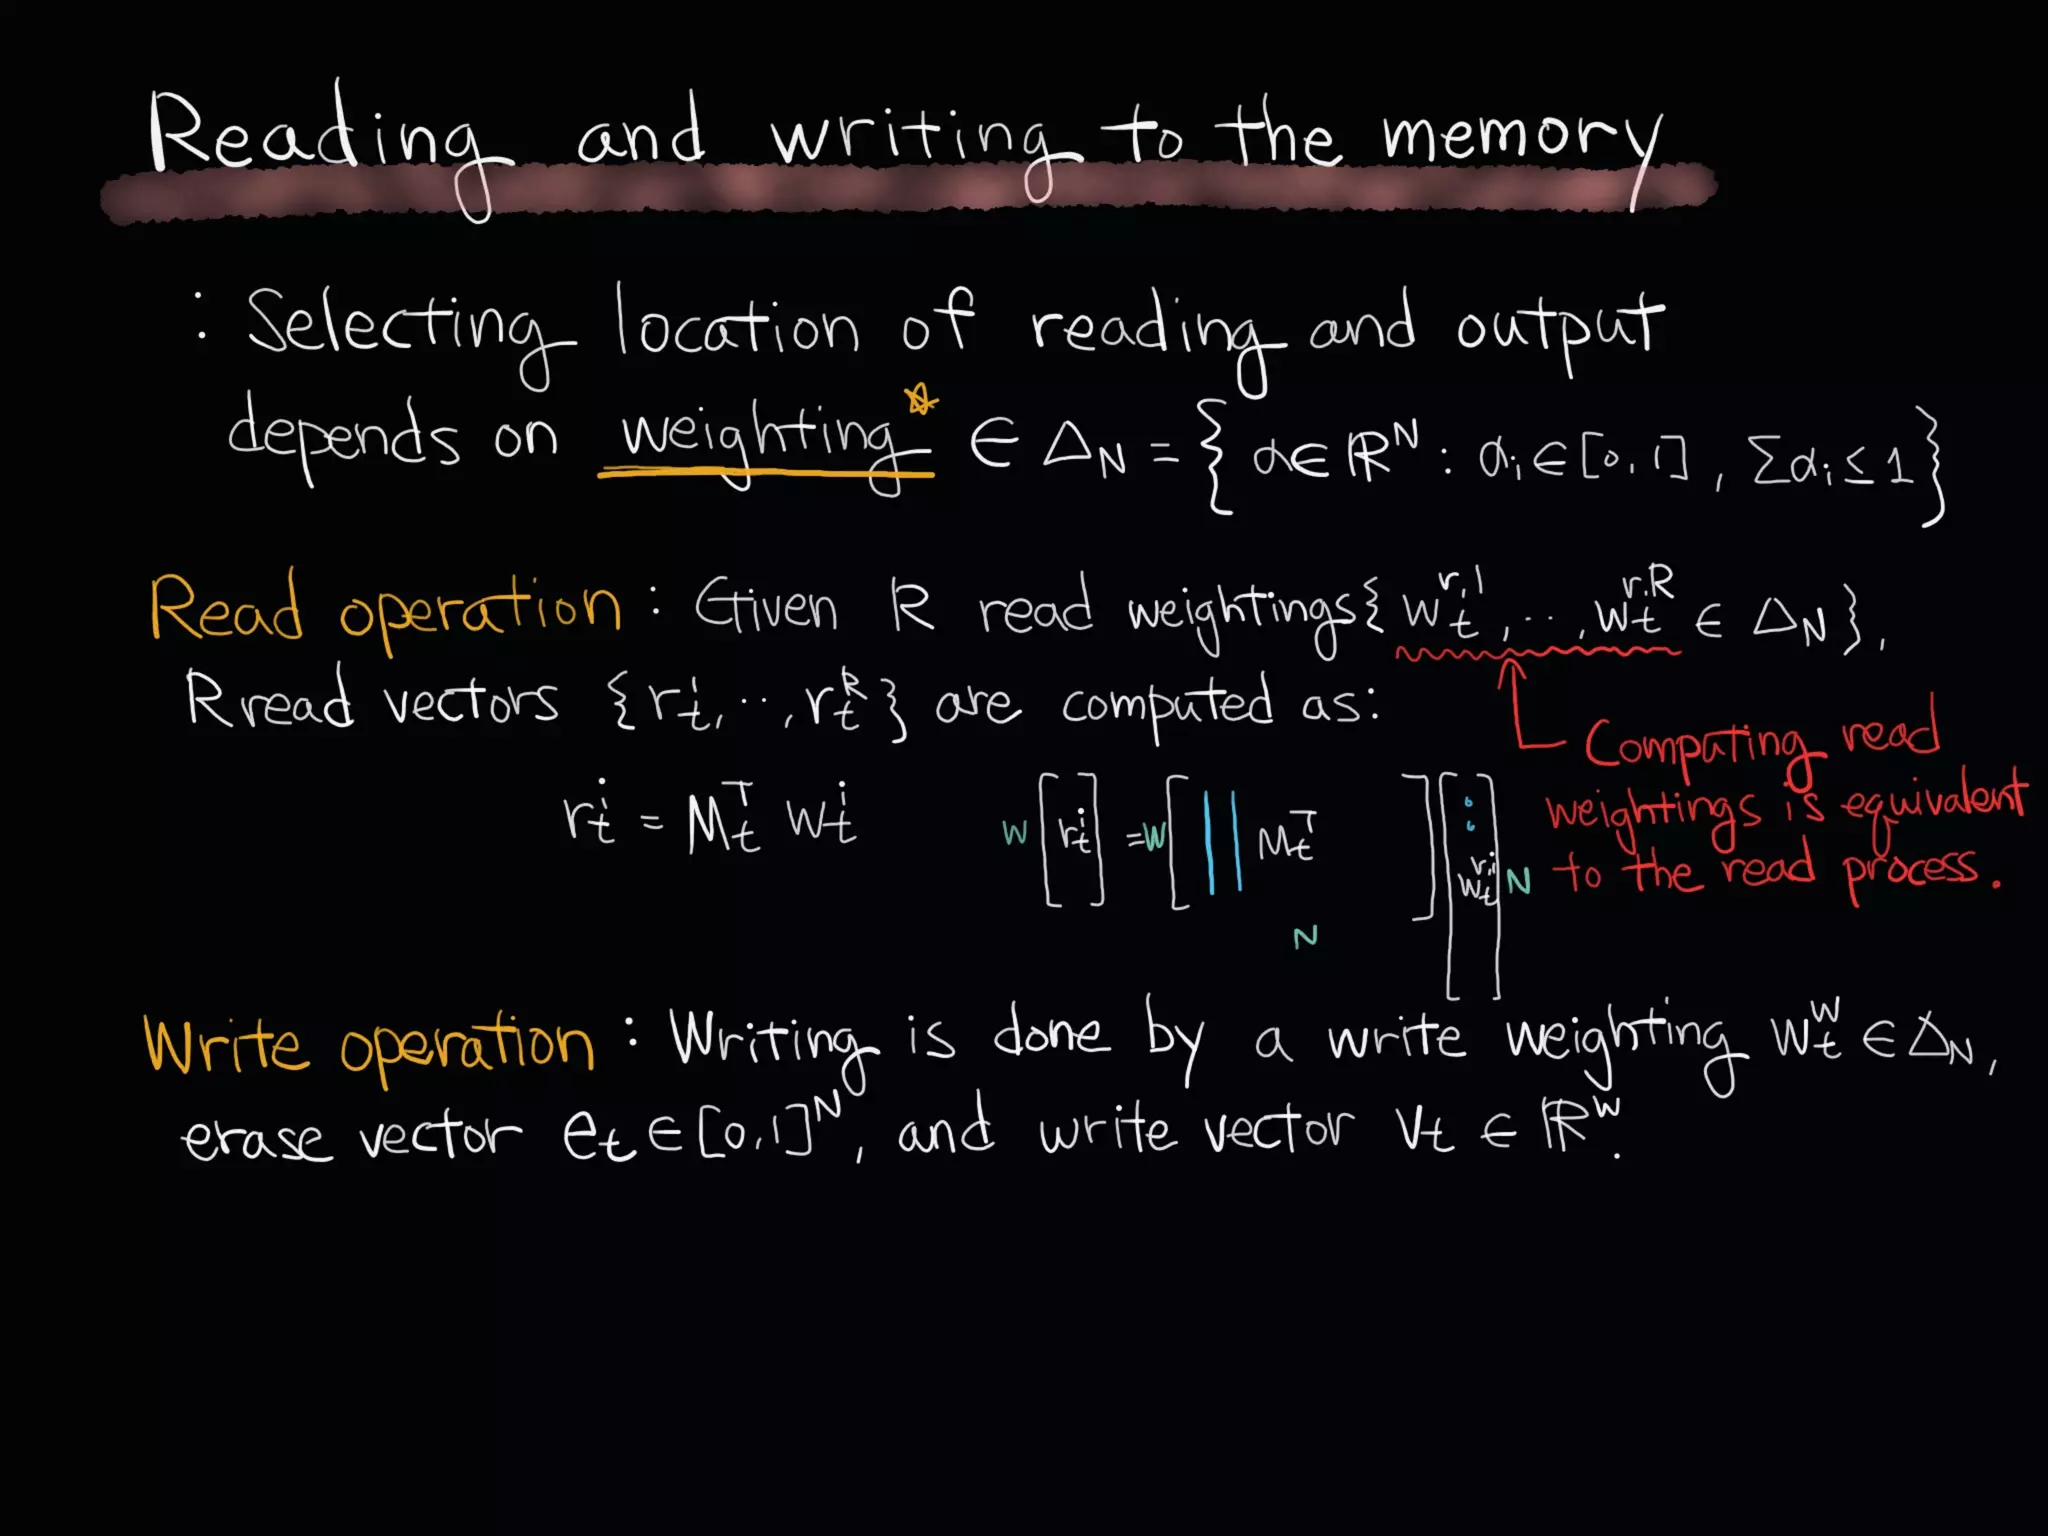 Reading and writing to the memory
: Selecting location of reading and output
depends on weighting* ∈ Δ_N = { α ∈ ℝ^N : α_i ∈ [0,1], Σα_i ≤ 1 }
Read operation : Given R read weightings { w_t^{r,1}, ..., w_t^{r,R} ∈ Δ_N },
R read vectors { r_t^1, ..., r_t^R } are computed as:
Computing read
weightings is equivalent
to the read process.
r_t^i = M_t^T w_t^i
W [ r_t^i ] = W [ M_t^T ] [ w_t^{r,i} ] N
N
Write operation : Writing is done by a write weighting w_t^w ∈ Δ_N,
erase vector e_t ∈ [0,1]^N, and write vector v_t ∈ ℝ^W.